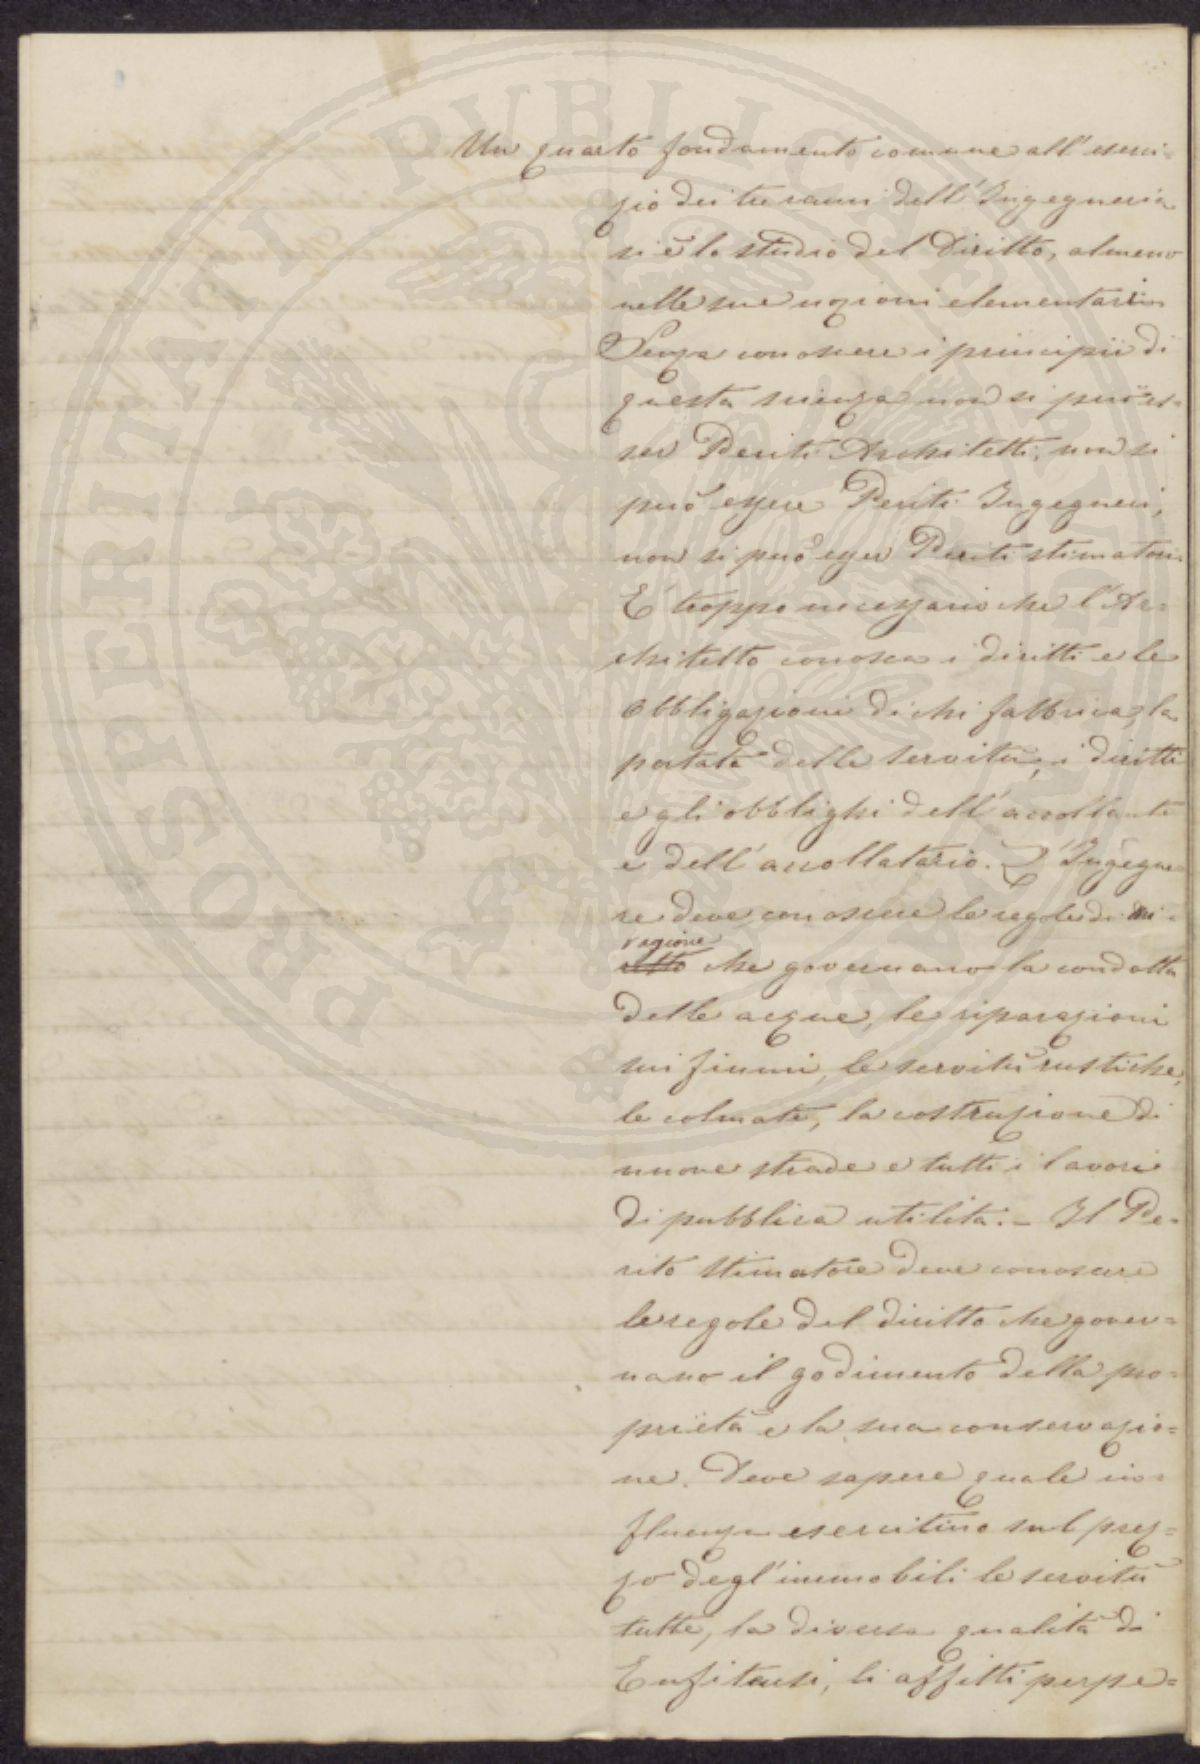 PROSPERITATI PUBLICAE
Un quarto fondamento comune all'eserci=
zio dei tre rami dell'Ingegneria
si è lo studio del Diritto, almeno
nelle sue nozioni elementari.
Senza conoscere i principii di
questa scienza non si può es=
ser Periti Architetti, non si
può essere Periti Ingegneri,
non si può esser Periti stimatori.
E' troppo necessario che l'Ar=
chitetto conosca i diritti e le
obbligazioni di chi fabbrica, la
portata delle servitù, i diritti
e gli obblighi dell'accollante
e dell'accollatario. L'Ingegne=
re deve conoscere le regole di
ragione
che governano la condotta
delle acque, le riparazioni
sui fiumi, le servitù rustiche,
le colmate, la costruzione di
nuove strade e tutti i lavori
di pubblica utilità. _ Il Pe=
rito stimatore deve conoscere
le regole del diritto che gover=
nano il godimento della pro=
prietà e la sua conservazio=
ne. Deve sapere quale in=
fluenza esercitino sul prez=
zo degl'immobili le servitù
tutte, la diversa qualità di
Enfiteusi, li affitti perpe=